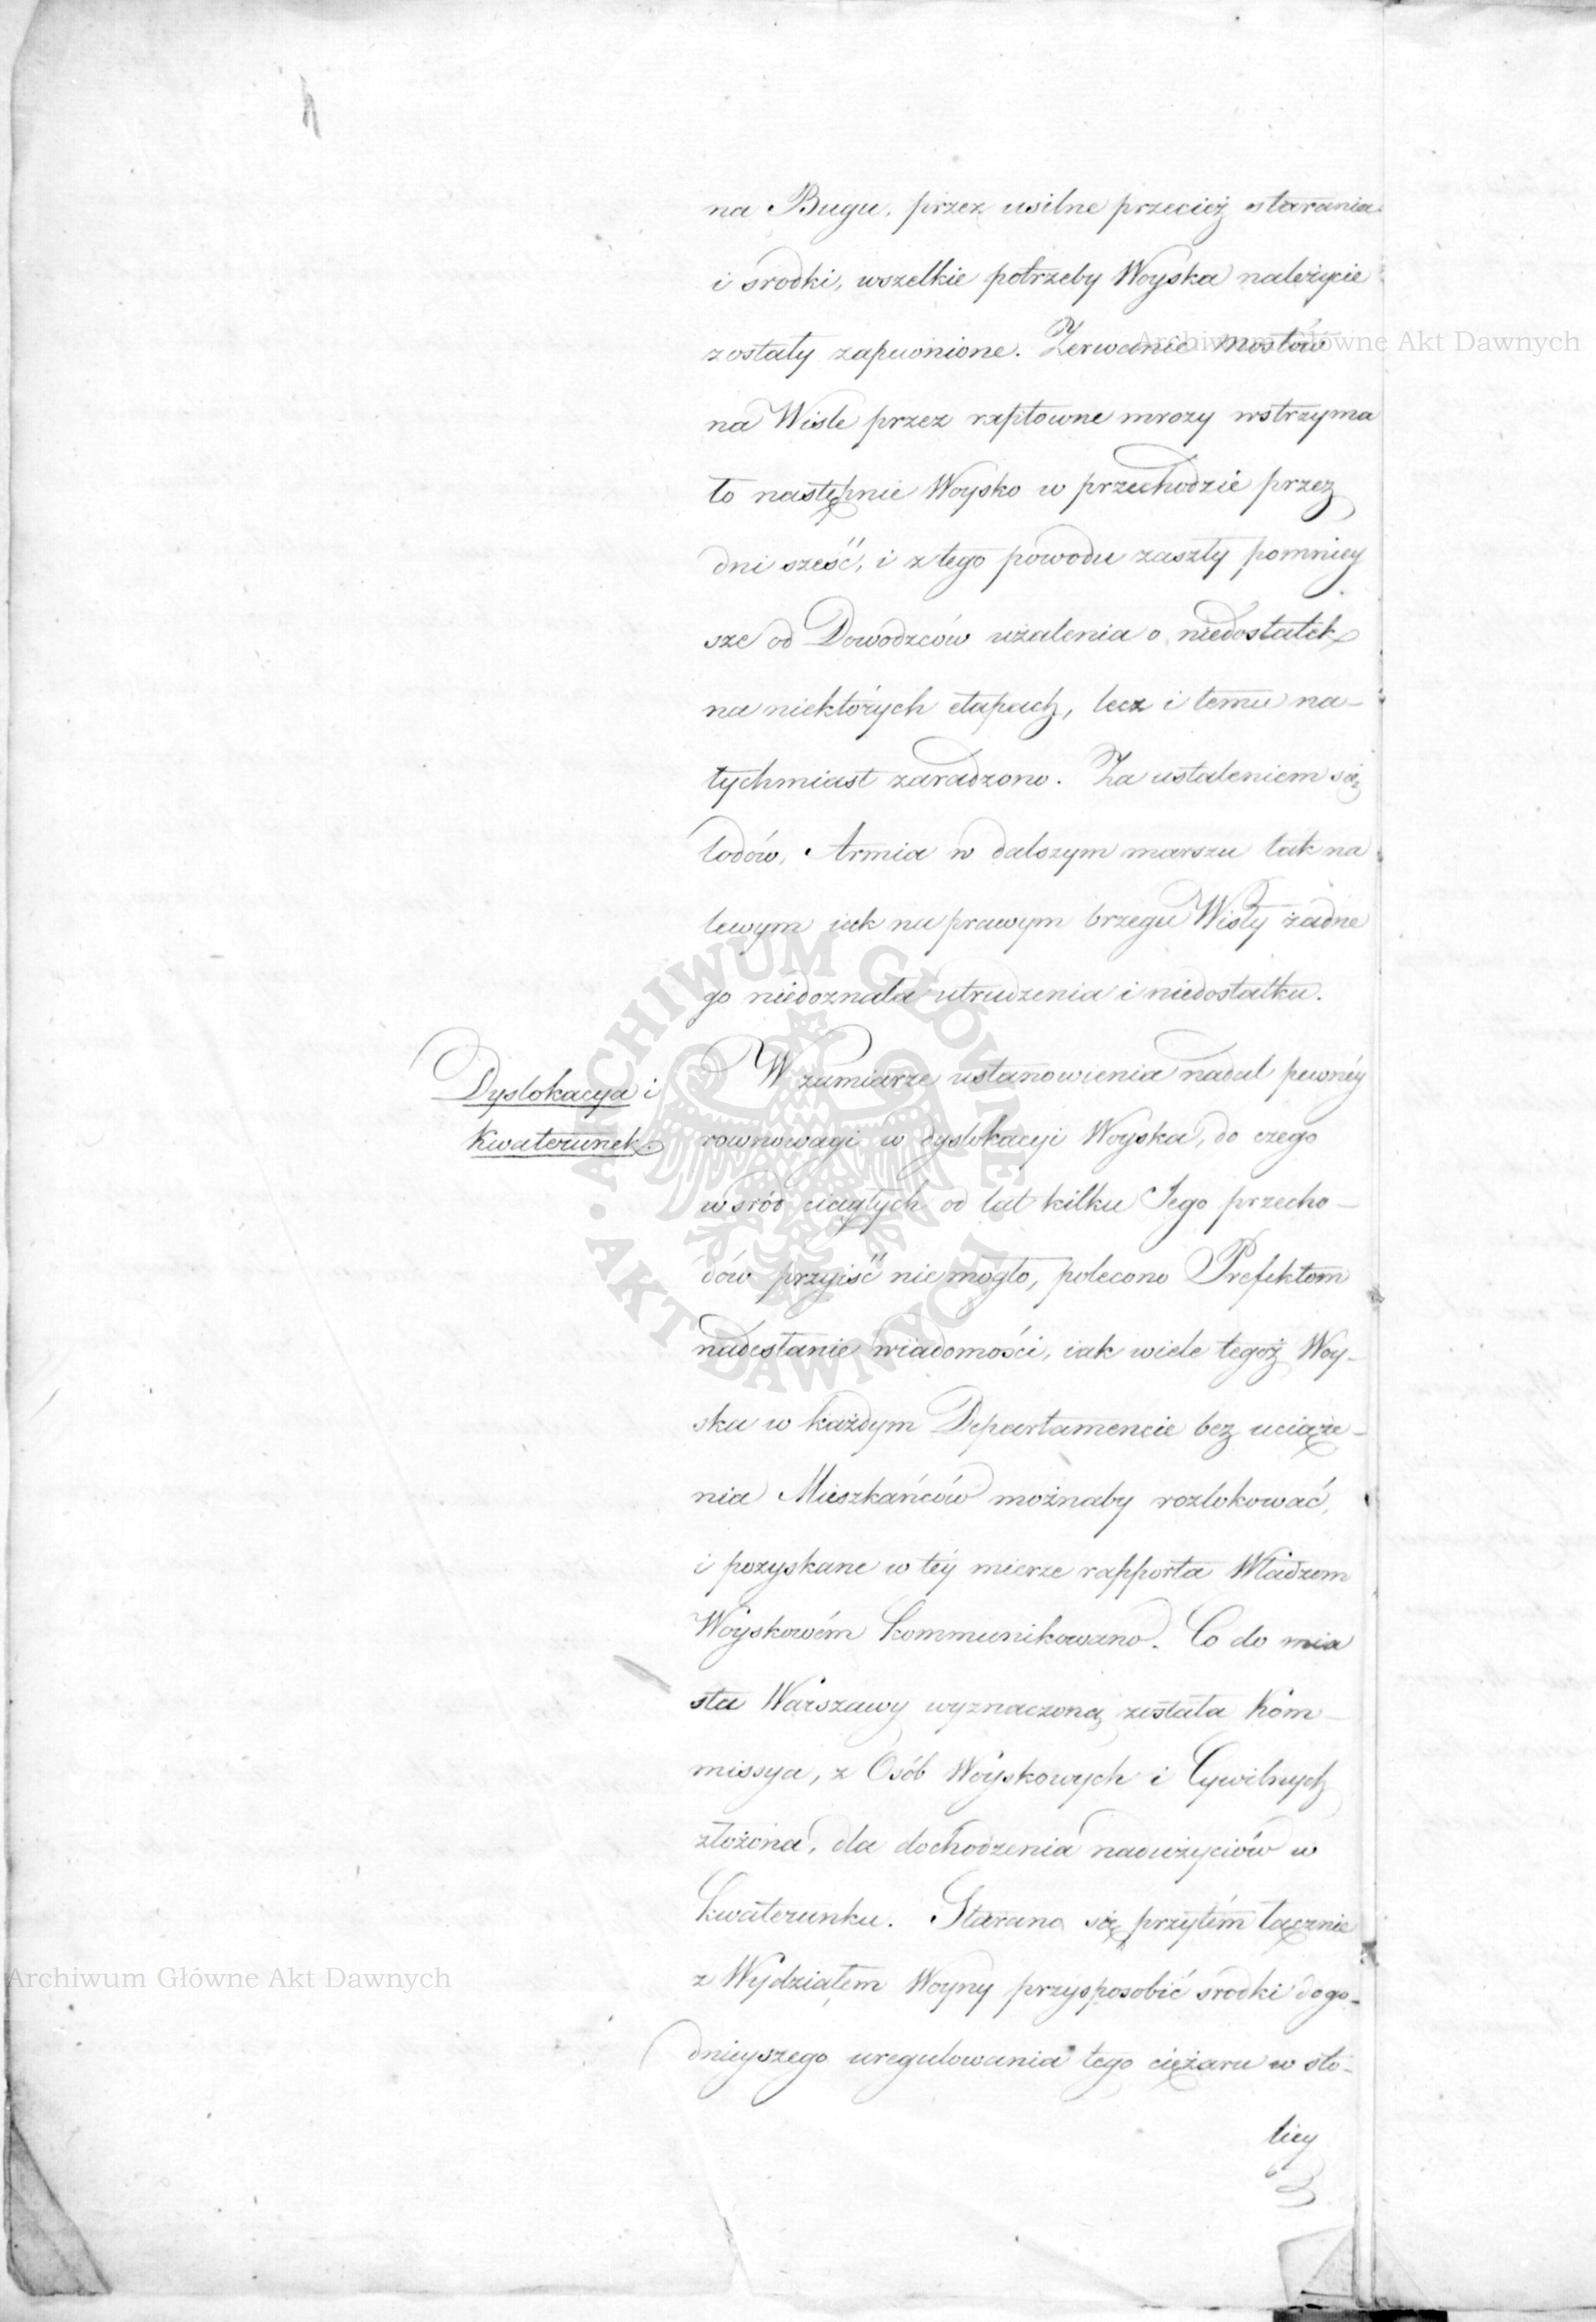 na Bugu, przez usilne przecież starania
i srodki, wszelkie potrzeby Woyska należycie
zostały zapewnione. Zerwanie mostów
na Wisle przez raptowne mrozy wstrzyma
ło następnie Woysko w przechodzie przez
dni sześć, i z tego powodu zaszły pomniey
sze od Dowodzców użalenia o niedostatek
na niektórych etapach, lecz i temu na-
tychmiast zaradzono. Za ustaleniem się
lodów, Armia w dalszym marszu tak na
lewym iak na prawym brzegu Wisły żadne
go niedoznała utrudzenia i niedostatku.
Dyslokacya i
Kwaterunek.
W zamiarze ustanowienia nadal pewnéy
rownowagi w dyslokacyi Woyska, do czego
wsród ciągłych od lat kilku Jego przecho-
dów przyiść niemogło, polecono Prefektom
nadesłanie wiadomości, iak wiele tegoż Woy-
ska w każdym Departamencie bez uciąże-
nia Mieszkańców możnaby rozlokować,
i pozyskane w téy mierze rapporta Władzom
Woyskowém kommunikowano. Co do mia
sta Warszawy wyznaczoną została Kom-
missya, z Osób Woyskowych i Cywilnych
złożona, dla dochodzenia nadużyciów w
kwaterunku. Starano się przytém łącznie
z Wydziałem Woyny przysposobić srodki dogo-
dnieyszego uregulowania tego ciężaru w sto-
licy
Archiwum Główne Akt Dawnych
Archiwum Główne Akt Dawnych
ARCHIWUM GŁÓWNE
AKT DAWNYCH